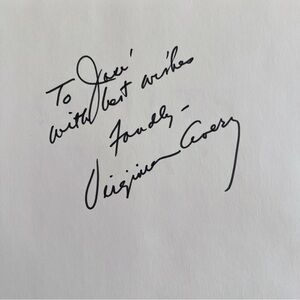 To Jase'
with best wishes
Fondly -
Virginia Avery